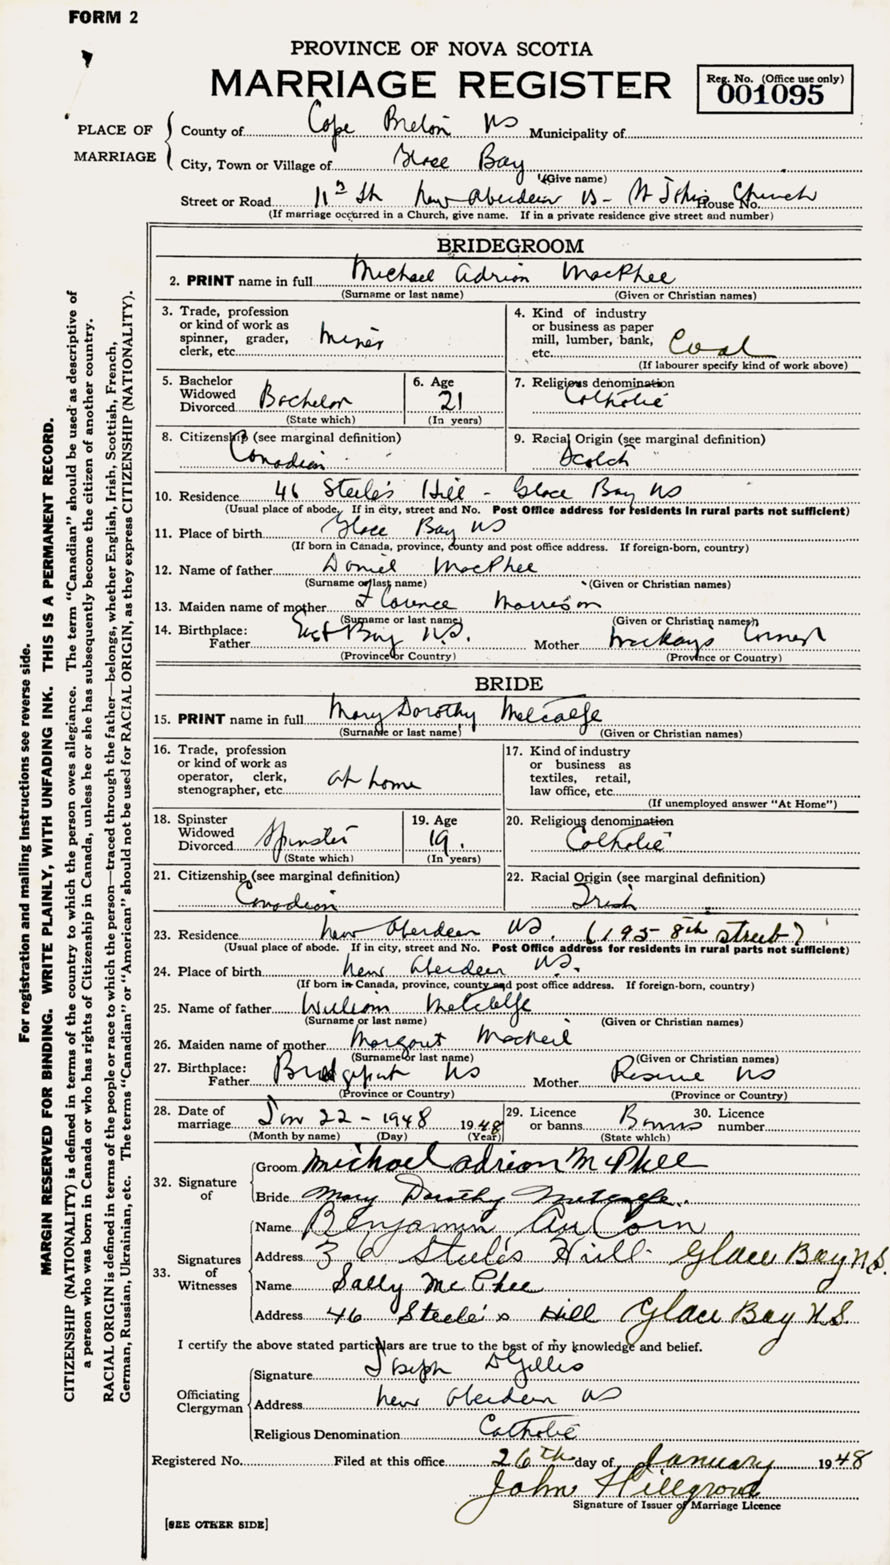 FORM 2
PROVINCE OF NOVA SCOTIA
MARRIAGE REGISTER
Reg. No. (Office use only)
001095
PLACE OF MARRIAGE
County of Cape Breton NS Municipality of
City, Town or Village of Glace Bay
(Give name)
Street or Road 11th St New Aberdeen House No. Church
(If marriage occurred in a Church, give name. If in a private residence give street and number)
BRIDEGROOM
2. PRINT name in full Michael Adrian MacPhee
(Surname or last name) (Given or Christian names)
3. Trade, profession or kind of work as spinner, grader, clerk, etc. Miner
4. Kind of industry or business as paper mill, lumber, bank, etc. Coal
(If labourer specify kind of work above)
5. Bachelor Widowed Divorced Bachelor
(State which)
6. Age 21
(In years)
7. Religious denomination Catholic
8. Citizenship (see marginal definition) Canadian
9. Racial Origin (see marginal definition) Scotch
10. Residence 46 Steele's Hill - Glace Bay NS
(Usual place of abode. If in city, street and No. Post Office address for residents in rural parts not sufficient)
11. Place of birth Glace Bay NS
(If born in Canada, province, county and post office address. If foreign-born, country)
12. Name of father Daniel MacPhee
(Surname or last name) (Given or Christian names)
13. Maiden name of mother Florence Morrison
(Surname or last name) (Given or Christian names)
14. Birthplace: Father East Bay N.S. Mother MacKays Corner
(Province or Country) (Province or Country)
BRIDE
15. PRINT name in full Mary Dorothy Metcalfe
(Surname or last name) (Given or Christian names)
16. Trade, profession or kind of work as operator, clerk, stenographer, etc. at home
17. Kind of industry or business as textiles, retail, law office, etc.
(If unemployed answer "At Home")
18. Spinster Widowed Divorced Spinster
(State which)
19. Age 19.
(In years)
20. Religious denomination Catholic
21. Citizenship (see marginal definition) Canadian
22. Racial Origin (see marginal definition) Irish
23. Residence New Aberdeen NS. (195 8th street)
(Usual place of abode. If in city, street and No. Post Office address for residents in rural parts not sufficient)
24. Place of birth New Aberdeen NS.
(If born in Canada, province, county and post office address. If foreign-born, country)
25. Name of father William Metcalfe
(Surname or last name) (Given or Christian names)
26. Maiden name of mother Margaret MacNeil
(Surname or last name) (Given or Christian names)
27. Birthplace: Father Bridgeport NS Mother Reserve NS
(Province or Country) (Province or Country)
28. Date of marriage Jan 22 - 1948 1948
(Month by name) (Day) (Year)
29. Licence or banns Banns
(State which)
30. Licence number
32. Signature of
Groom Michael Adrian McPhee
Bride Mary Dorothy Metcalfe.
33. Signatures of Witnesses
Name Benjamin
Address 36 Steele's Hill. Glace Bay N.S.
Name Sally McPhee
Address 46 Steele's Hill Glace Bay N.S.
I certify the above stated particulars are true to the best of my knowledge and belief.
Officiating Clergyman
Signature Joseph D Gillis
Address New Aberdeen NS
Religious Denomination Catholic
Registered No. Filed at this office 26th day of January 1948
John Hillgrove
Signature of Issuer of Marriage Licence
[SEE OTHER SIDE]
For registration and mailing instructions see reverse side.
MARGIN RESERVED FOR BINDING. WRITE PLAINLY, WITH UNFADING INK. THIS IS A PERMANENT RECORD.
CITIZENSHIP (NATIONALITY) is defined in terms of the country to which the person owes allegiance. The term "Canadian" should be used as descriptive of
a person who was born in Canada or who has rights of Citizenship in Canada, unless he or she has subsequently become the citizen of another country.
RACIAL ORIGIN is defined in terms of the people or race to which the person—traced through the father—belongs, whether English, Irish, Scottish, French,
German, Russian, Ukrainian, etc. The terms "Canadian" or "American" should not be used for RACIAL ORIGIN, as they express CITIZENSHIP (NATIONALITY).